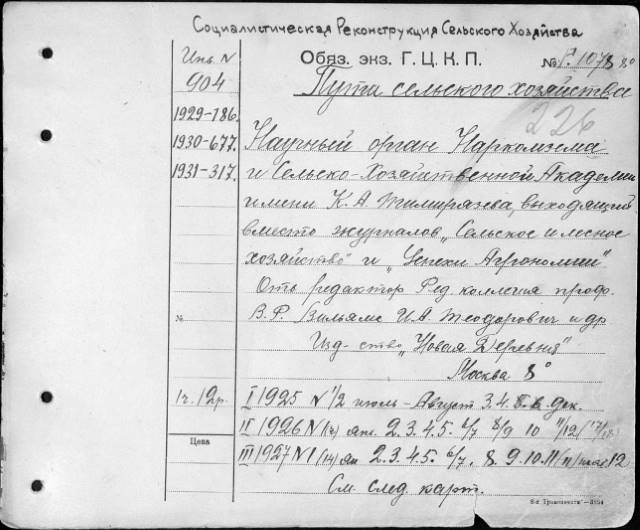 Социалистическая Реконструкция Сельского Хозяйства
Инв. N Обяз. экз. Г. Ц. К. П. № P. 1078 8°
904 Пути сельского хозяйства
226
1929-786.
1930-677. Научный орган Наркомзема
1931-317. и Сельско-Хозяйственной Академии
имени К. А Тимирязева, выходящий
вместо журналов „Сельское и лесное
хозяйство" и „Успехи Агрономии"
Отв редактор Ред. коллегия проф.
№ В. Р. Вильямс И. А. Теодорович и др
Изд-ство „Новая Деревня"
Москва 8°
1 г. 12 р. I 1925 N 1/2 июль - Август 3. 4. 5. 6. дек.
II 1926 N 1 янв. 2. 3. 4. 5. 6/7 8/9 10 11/12
Цена
III 1927 N 1 (14) ян 2. 3. 4. 5. 6/7. 8. 9. 10. 11 12
См. след. карт.